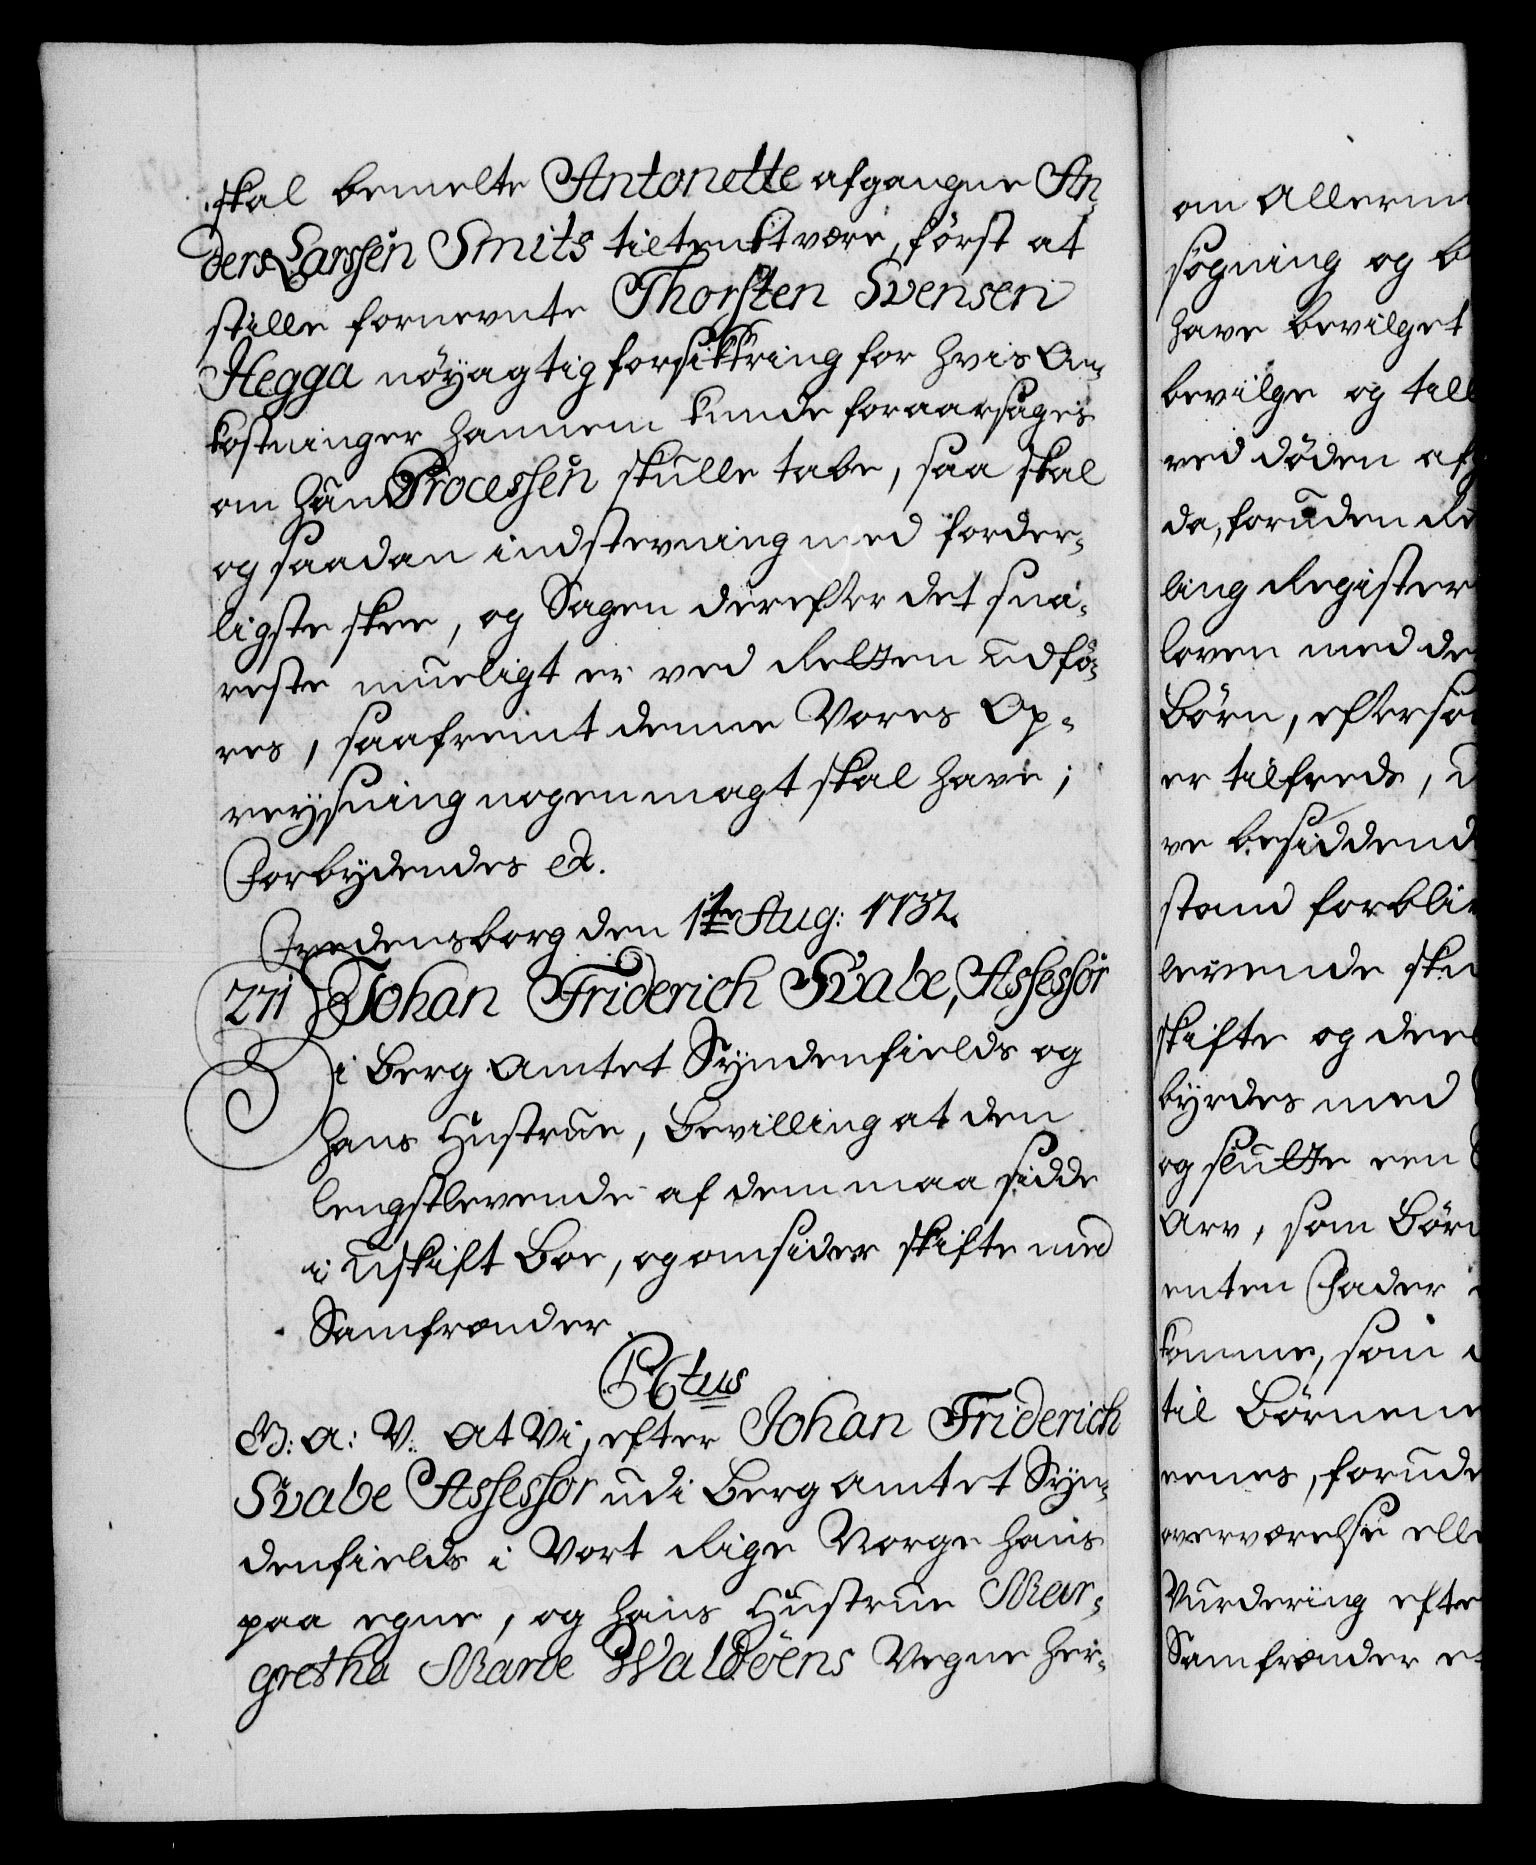 skal bemelte Antonette afgangne An-
ders Larssen Smits tiltenkt være, först at
stille fornevnte Thorsten Svensen
Hegga nöyagtig forsikkring for hvis Om-
kostninger hannem kunde foraarsages
om han Processen skulle tabe, saa skal
og saadan indstevning med forder-
ligste skee, og Sagen derefter det sna-
reste mueligt er ved Retten udfö-
res, saafremt denne Vores Op-
reysning nogen magt skal have;
Forbydendes etc.
Fredensborg den 1ste Aug: 1732.
271 Johan Friderich Svabe, Assessor
i Berg Amtet Syndenfields og
hans Hustrue, Bevilling at den
lengstlevende af dem maa sidde
i uskift Boe, og omsider skifte med
Samfrender.
C 6tus
G: A: V: At Vi, efter Johan Friderich
Svabe Assessor udi Berg Amtet Syn-
denfields i Vort Rige Norge hans
paa egne, og hans Hustrue Mar-
gretha Marie Waldöens Vegne her-
om Allerun
sögning og b
have bevilget
bevilge og till
ved döden af
da, foruden Re
ling Register
loven med de
Börn, eftersom
er tilfreds, u
ve besiddend
stand forbliv
levende sku
skifte og dere
byrdes med
og slutte een
Arv, som Börn
enten Fader
komme, som
til Börnene
renes, forude
overværelse elle
Vurdering efte
Samfrender e